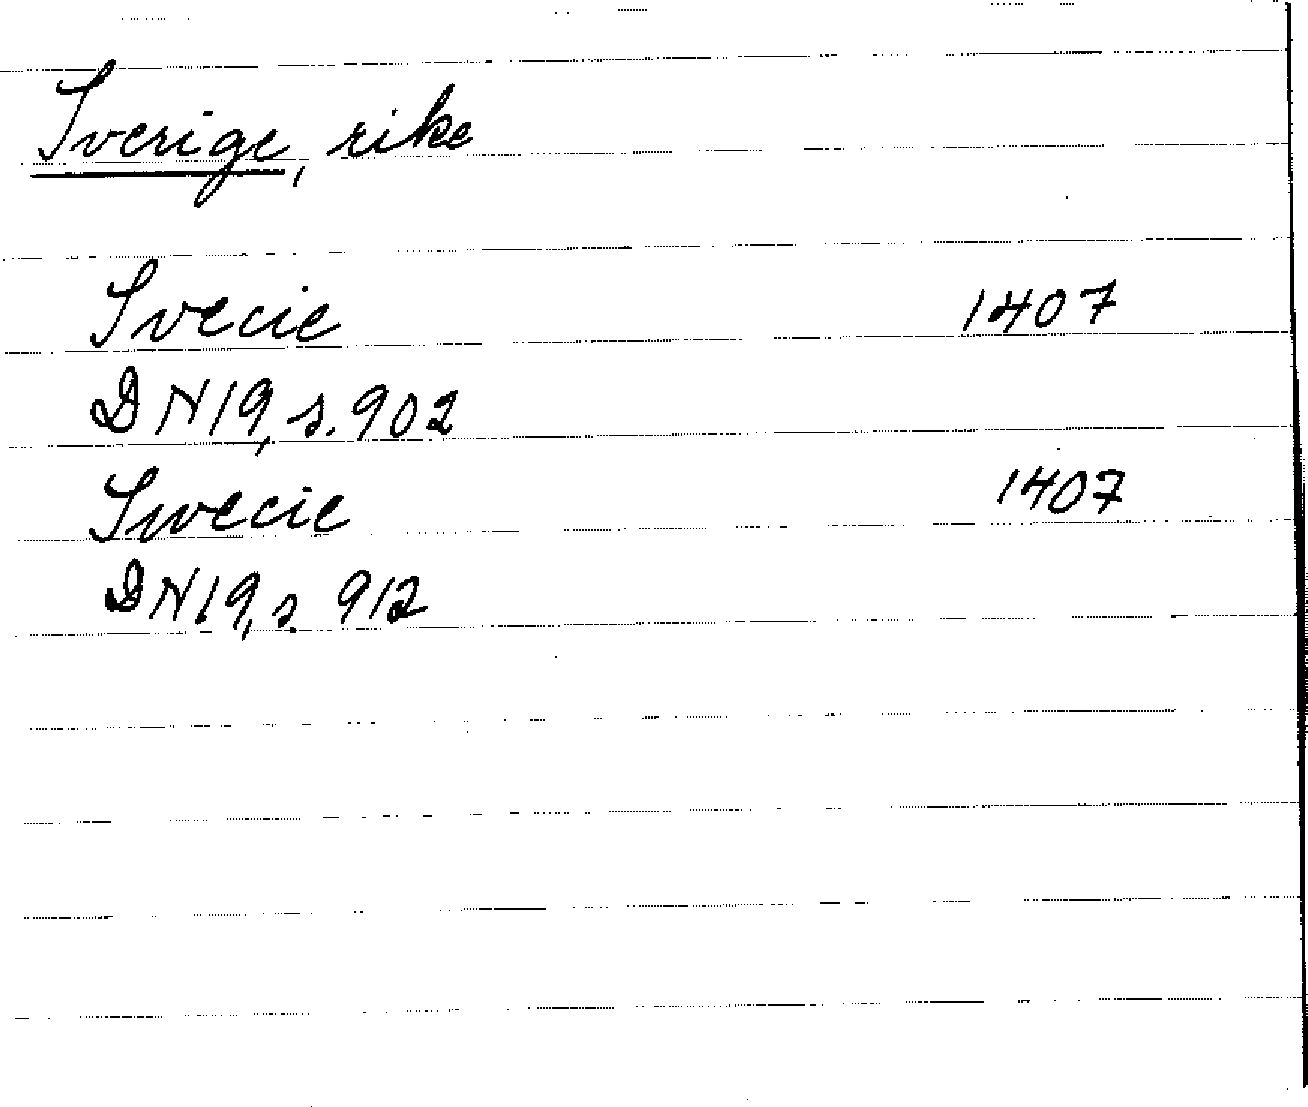 Sverige, rike
Svecie 1407
DN19, s. 902
Swecie 1407
DN19, s. 912